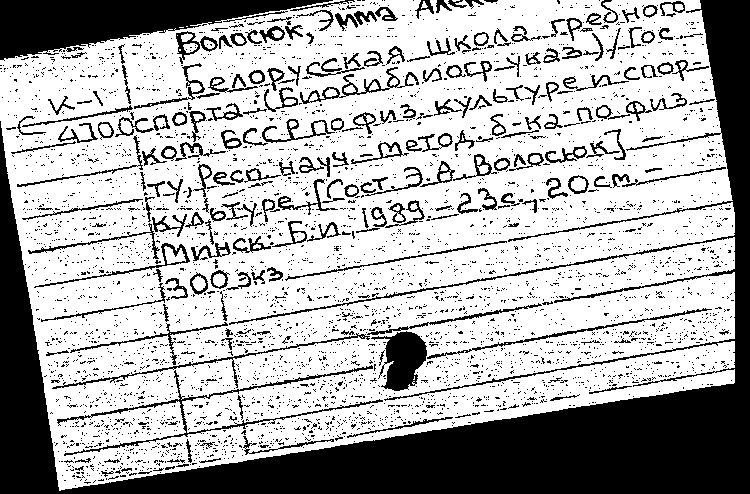 Волосюк, Эмма
Белорусская школа гребного
К-1
4700 спорта: (Библиогр. указ.) / Гос
ком. БССР по физ. культуре и спор-
ту, Респ. науч.-метод. б-ка по физ
культуре; [Сост. Э.А. Волосюк] -
Минск: Б.и., 1989 - 23с.; 20см. -
300 экз.